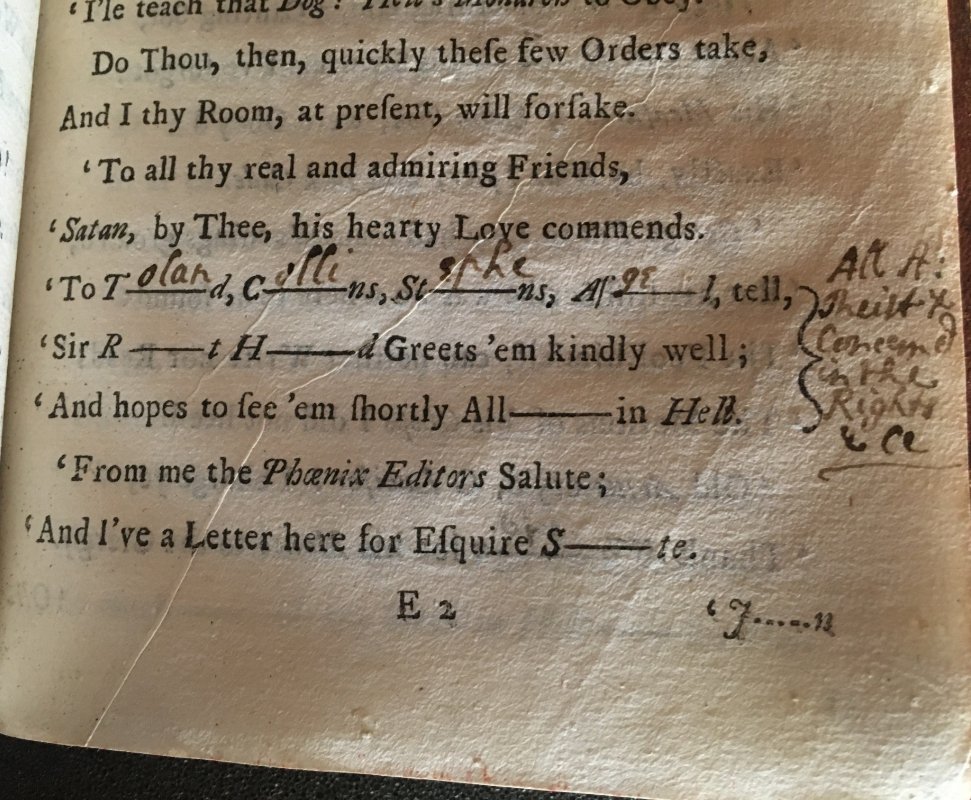 ‘I'le teach that Dog! Hell's Monarch to Obey.
Do Thou, then, quickly theſe few Orders take,
And I thy Room, at preſent, will forſake.
‘To all thy real and admiring Friends,
‘Satan, by Thee, his hearty Love commends.
‘To T—oland—d, C—olli—ns, St—ephe—ns, Aſ—ge—l, tell,
‘Sir R——t H——d Greets 'em kindly well;
‘And hopes to ſee 'em ſhortly All——in Hell.
‘From me the Phœnix Editors Salute;
‘And I've a Letter here for Eſquire S——te.
E 2
‘J.....n
All A:
theiſt &
Concernd
in the
Rights
& ce